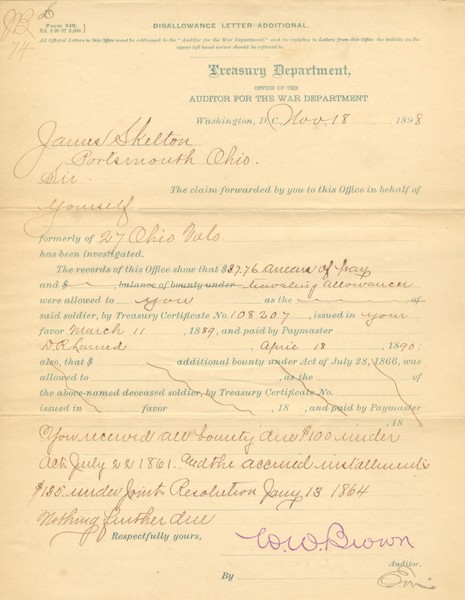 DISALLOWANCE LETTER-ADDITIONAL.
All Official Letters to this Office must be addressed to the "Auditor for the War Department," and in replying to Letters from this Office the initials on the
upper left-hand corner should be referred to.
Treasury Department,
OFFICE OF THE
AUDITOR FOR THE WAR DEPARTMENT
Washington, D.C., Nov. 18 1898
James Skelton
Portsmouth Ohio.
Sir:
The claim forwarded by you to this Office in behalf of
yourself
formerly of 27 Ohio Vols
has been investigated.
The records of this Office show that $37.76 arrears of pay
and $ , balance of bounty under traveling allowances
were allowed to you as the of
said soldier, by Treasury Certificate No. 108207, issued in your
favor March 11, 1889, and paid by Paymaster
D R Larned April 18, 1890;
also, that $ additional bounty under Act of July 28, 1866, was
allowed to , as the of
the above-named deceased soldier, by Treasury Certificate No.
issued in favor , 18 , and paid by Paymaster
, 18
You received all bounty due $100 under
Act July 22 1861. and the accrued installments
$130 under Joint Resolution Jany 13 1864
Nothing further due
Respectfully yours,
W.W. Brown
Auditor.
By